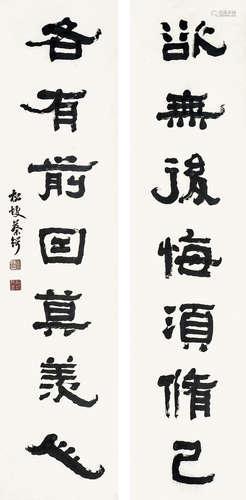 欲無後悔須脩己
各有前因莫羨人
松坡蔡鍔